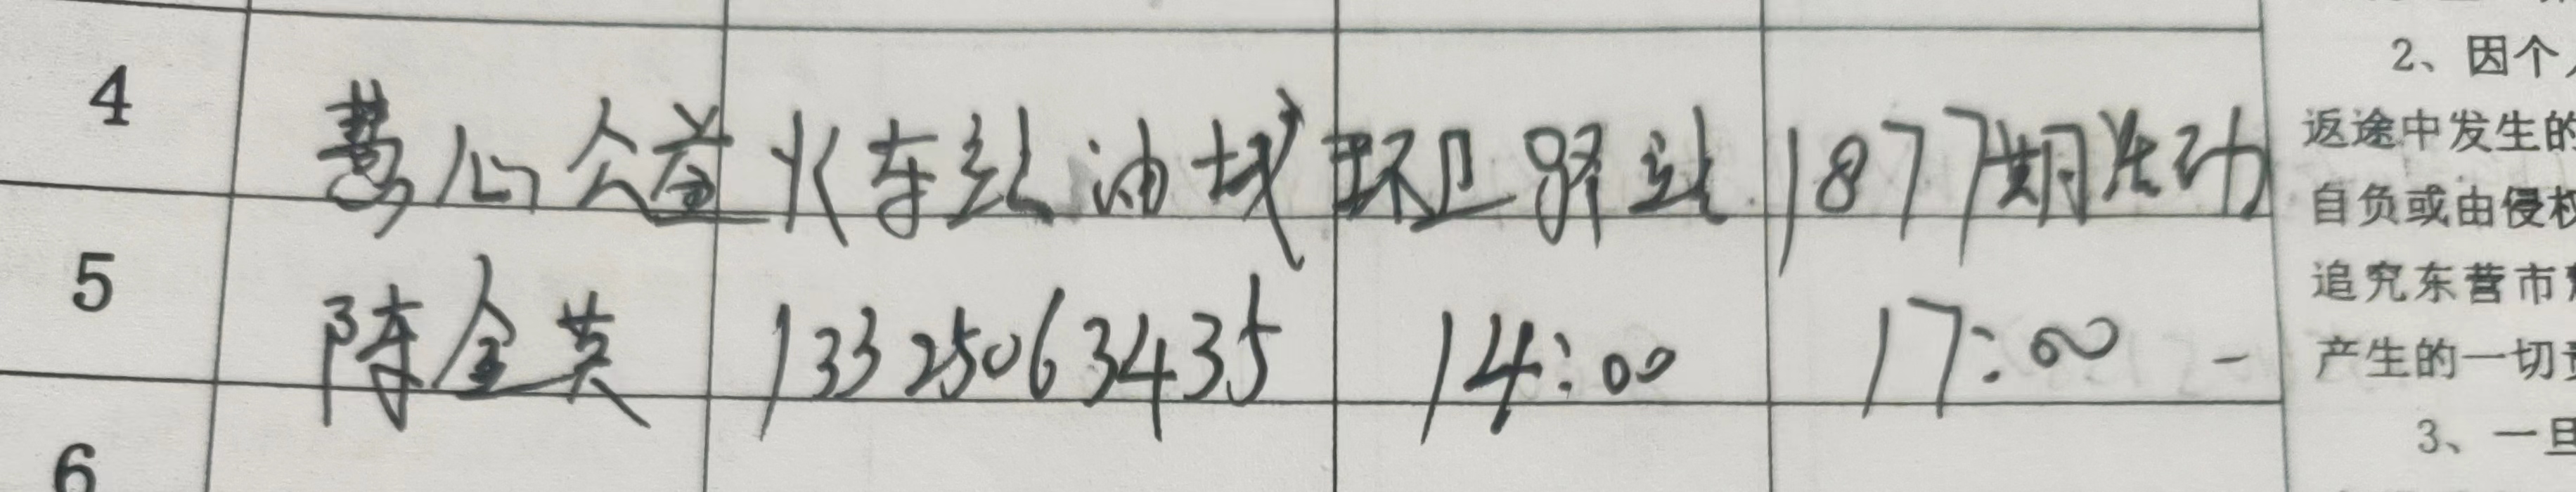 4 慧心公益火车站油城环卫驿站1877期活动
5 陈金英 13325063435 14:00 17:00 -
6
2、因个
返途中发生的
自负或由侵权
追究东营市
产生的一切责
3、一旦